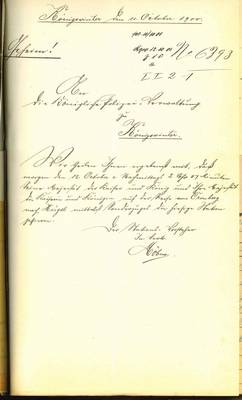 Königswinter den 11 October 1900.
Geheim!
No 6393
II 2 1
An
die Königliche Polizei-Verwaltung
zu
Königswinter.
Wir theilen Ihnen ergebenst mit, daß
morgen den 12 October Nachmittags 2 Uhr 57 Minuten
Seine Majestät der Kaiser und König und Ihre Majestät
die Kaiserin und Königin auf der Reise von
nach Hügel mittelst Sonderzuges die hiesige Station
passiren.
Der Stations-Vorsteher